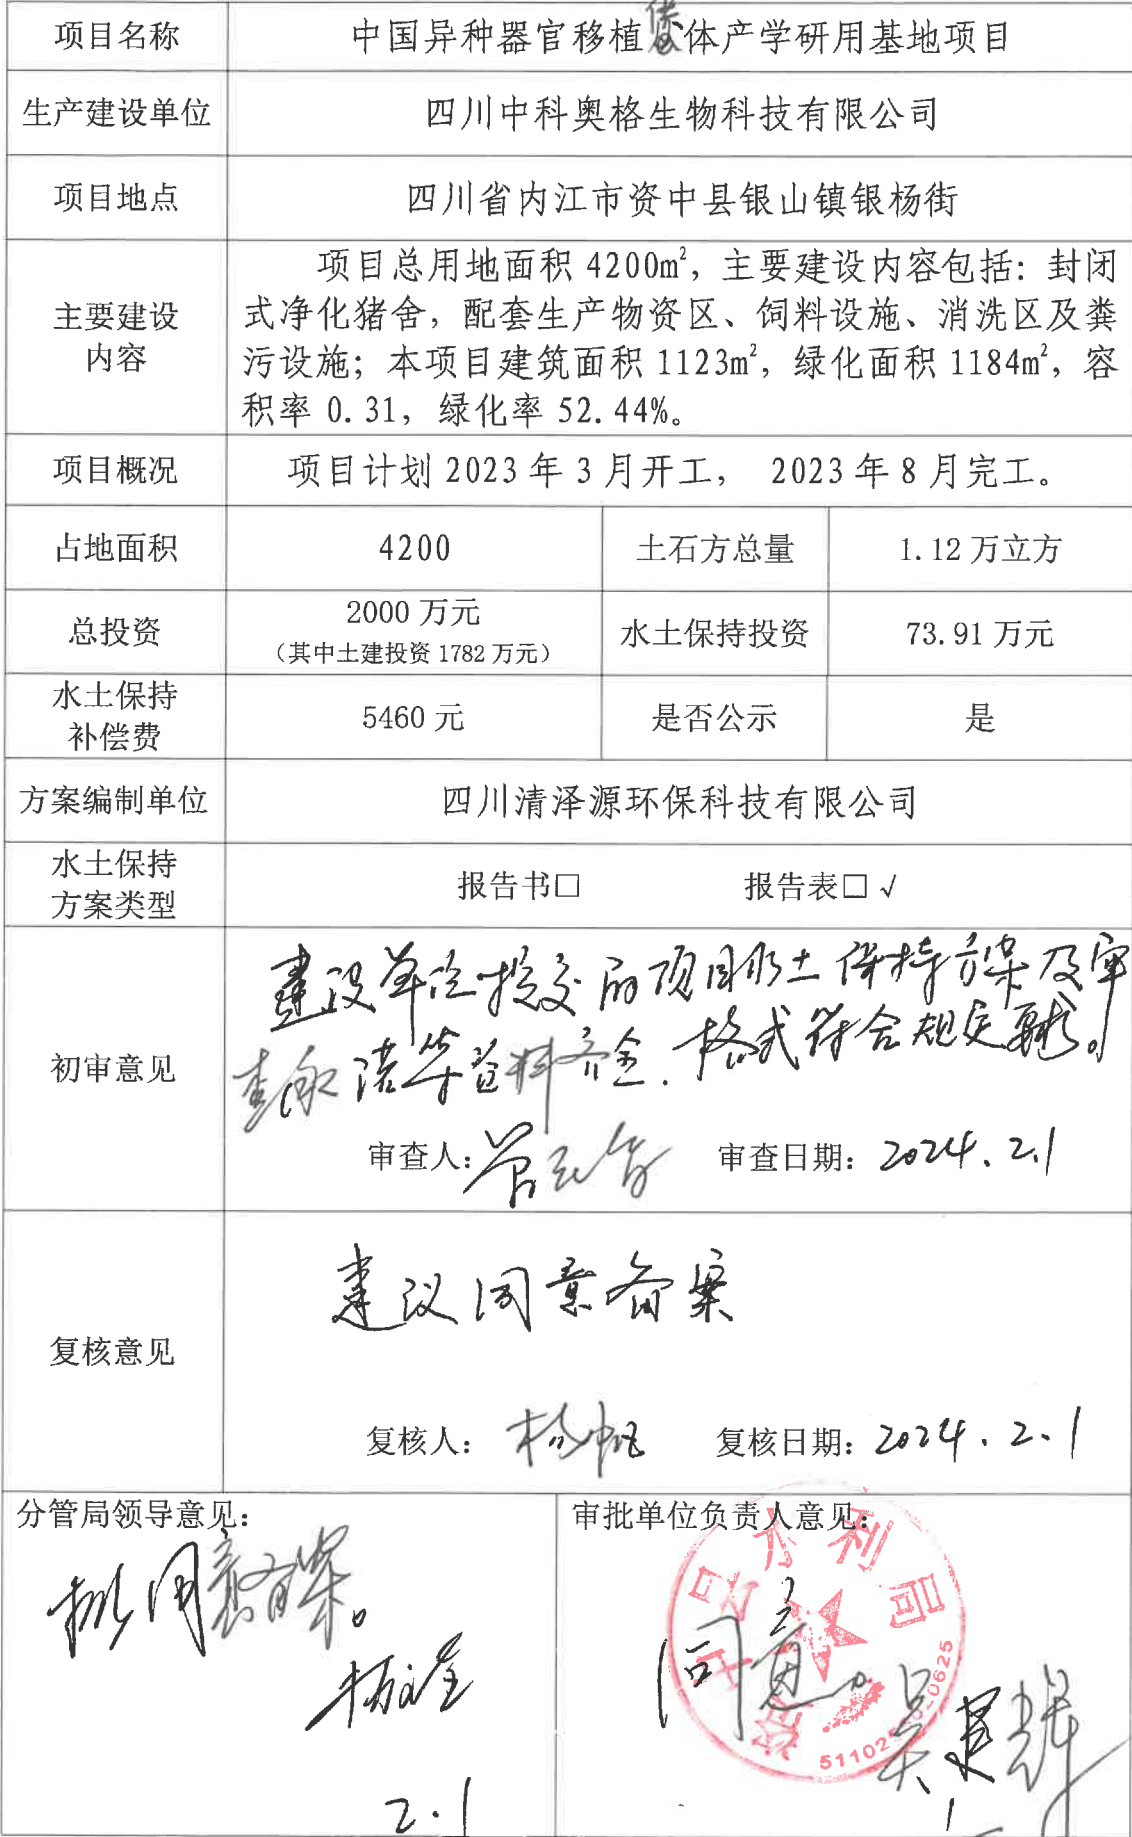 项目名称 中国异种器官移植供体产学研用基地项目
生产建设单位 四川中科奥格生物科技有限公司
项目地点 四川省内江市资中县银山镇银杨街
主要建设
内容
项目总用地面积 4200m²，主要建设内容包括：封闭
式净化猪舍，配套生产物资区、饲料设施、消洗区及粪
污设施；本项目建筑面积 1123m²，绿化面积 1184m²，容
积率 0.31，绿化率 52.44%。
项目概况 项目计划 2023 年 3 月开工， 2023 年 8 月完工。
占地面积 4200 土石方总量 1.12 万立方
总投资 2000 万元
（其中土建投资 1782 万元）
水土保持投资 73.91 万元
水土保持
补偿费
5460 元 是否公示 是
方案编制单位 四川清泽源环保科技有限公司
水土保持
方案类型
报告书□ 报告表□ √
初审意见
建设单位提交的项目水土保持方案及审
查承诺等资料齐全，格式符合规定要求。
审查人： 审查日期：2024.2.1
复核意见
建议同意备案
复核人：杨帆 复核日期：2024.2.1
分管局领导意见：
拟同意备案。
2.1
审批单位负责人意见：
同意。
资中县水利局